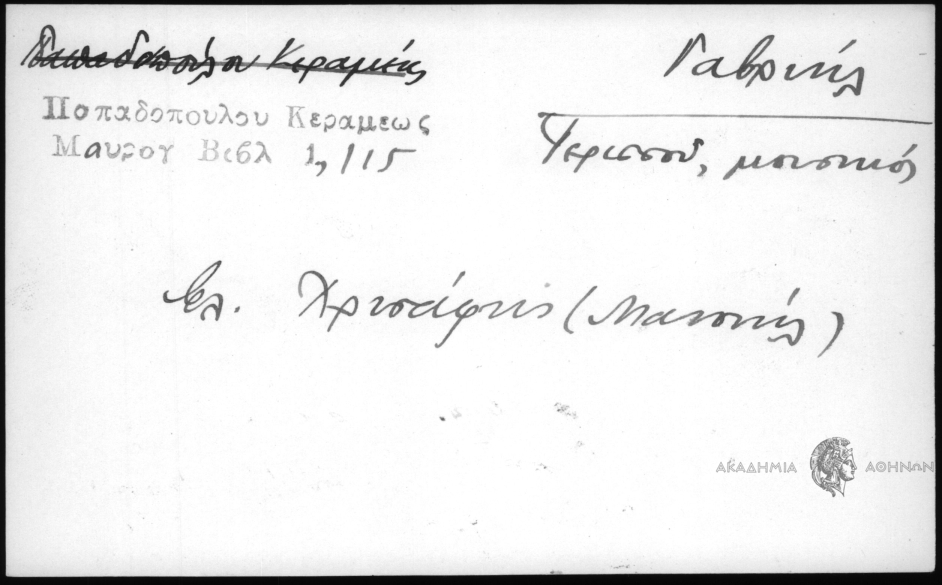 Παπαδοπούλου Κεραμέως
Παπαδοπουλου Κεραμεως
Μαυρογ Βιβλ 1, 115
Γαβριήλ
μουσικός
βλ. Χρυσάφης (Μανουήλ)
ΑΚΑΔΗΜΙΑ ΑΘΗΝΩΝ